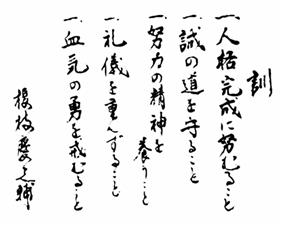 訓
一、人格完成に努むること
一、誠の道を守ること
一、努力の精神を養うこと
一、礼儀を重んずること
一、血気の勇を戒むること